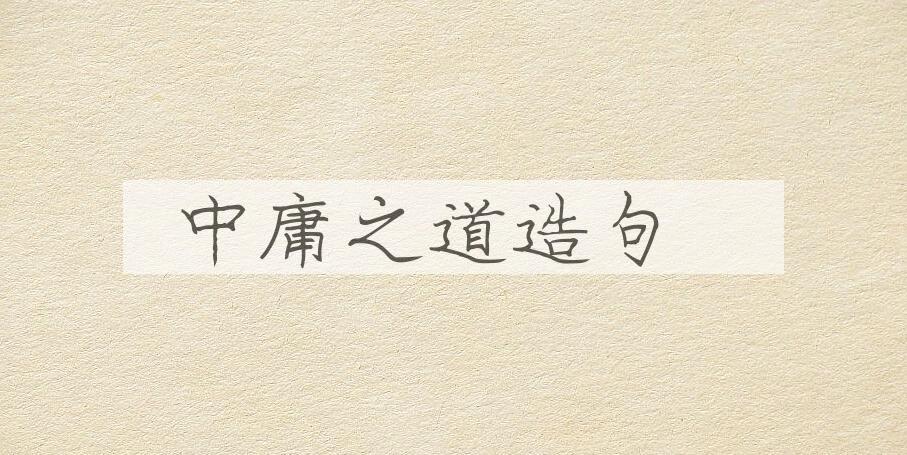 中庸之道造句